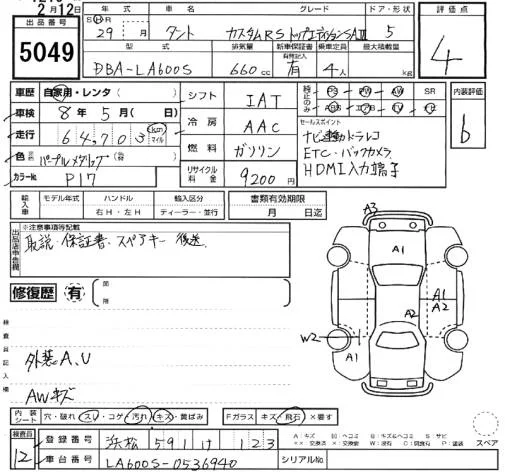 2月12日
出品番号
5049
年式 車名 グレード ドア・形状
SHR 29 月 タント カスタムRS トップエディションSAⅢ 5
評価点
4
型式 排気量 新車保証書 乗車定員 最大積載量
有無記入
DBA-LA600S 660cc 有 4人 kg
車歴 自家用・レンタ( )
車検 8年5月( 日)
走行 64,703 km マイル
色 パープルメタリック
カラーNo. P17
シフト IAT
冷房 AAC
燃料 ガソリン
リサイクル料金 9200円
純正のみ PS PW AW SR
ABS エアB TV ナビ
セールスポイント
ナビ連動ドラレコ
ETC・バックカメラ
HDMI入力端子
内装評価
b
輸入車 モデル年式 ハンドル 輸入区分
年 右H・左H ディーラー・並行
書類有効期限
月 日迄
出品店申告欄
※注意事項等記載
取説・保証書・スペアキー 後送
修復歴 有
箇所
検査員記入欄
外装A、U
AWキズ
A3
A1
A2
A1
A2
W2
A1
内装シート 穴・破れ スレ・コゲ・汚れ・キズ・黄ばみ Fガラス キズ・飛石 ×要す
A:キズ U:凹ミ B:凹ミ&キズ S:サビ
××:交換済 ×:交換 W:波有 C:腐食有 P:塗装
スペア
検査員
12
登録番号 浜松 591 け 123
車台番号 LA600S-0536940
シリアルNo.